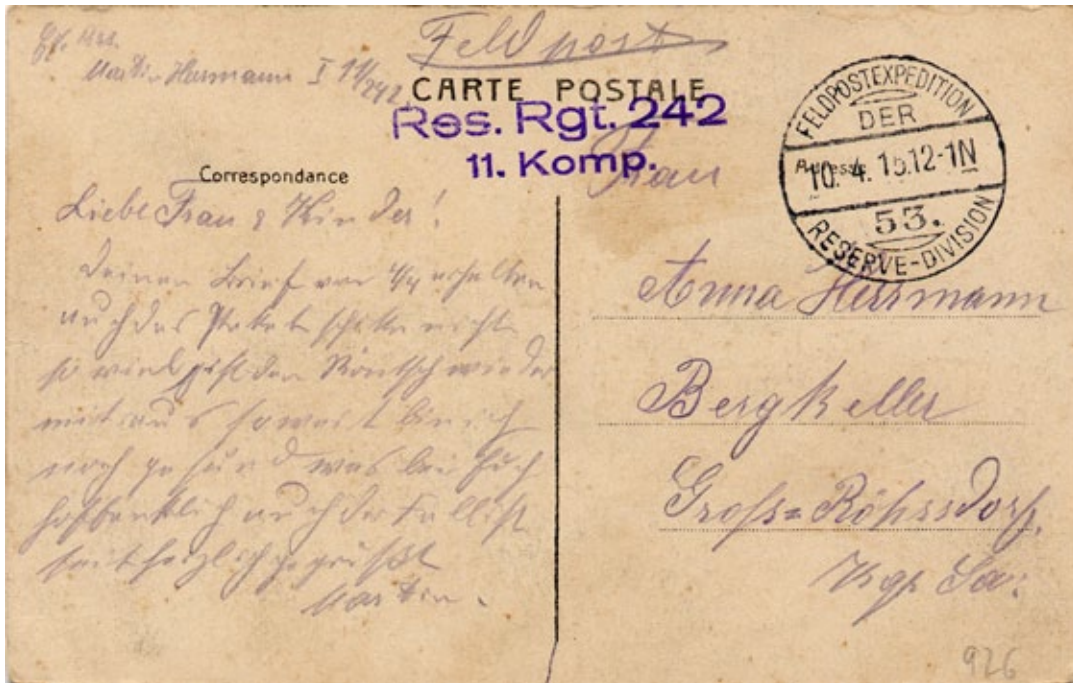 Feldpost
Martin Herrmann I 11/242
CARTE POSTALE
Res. Rgt. 242
11. Komp.
FELDPOSTEXPEDITION
DER
10. 4. 15. 12-1N
53.
RESERVE-DIVISION
Correspondance
Frau
Liebe Frau & Kinder!
Deinen Brief vom erhalten
auch das Paket schicke nicht
so viel ist der wieder
mit aus soweit bin ich
noch gesund was bei Euch
hoffentlich auch der Fall ist
seit herzlich gegrüßt
Martin.
Anna Herrmann
Bergkeller
Groß=Röhrsdorf.
Kgr Sa:
926